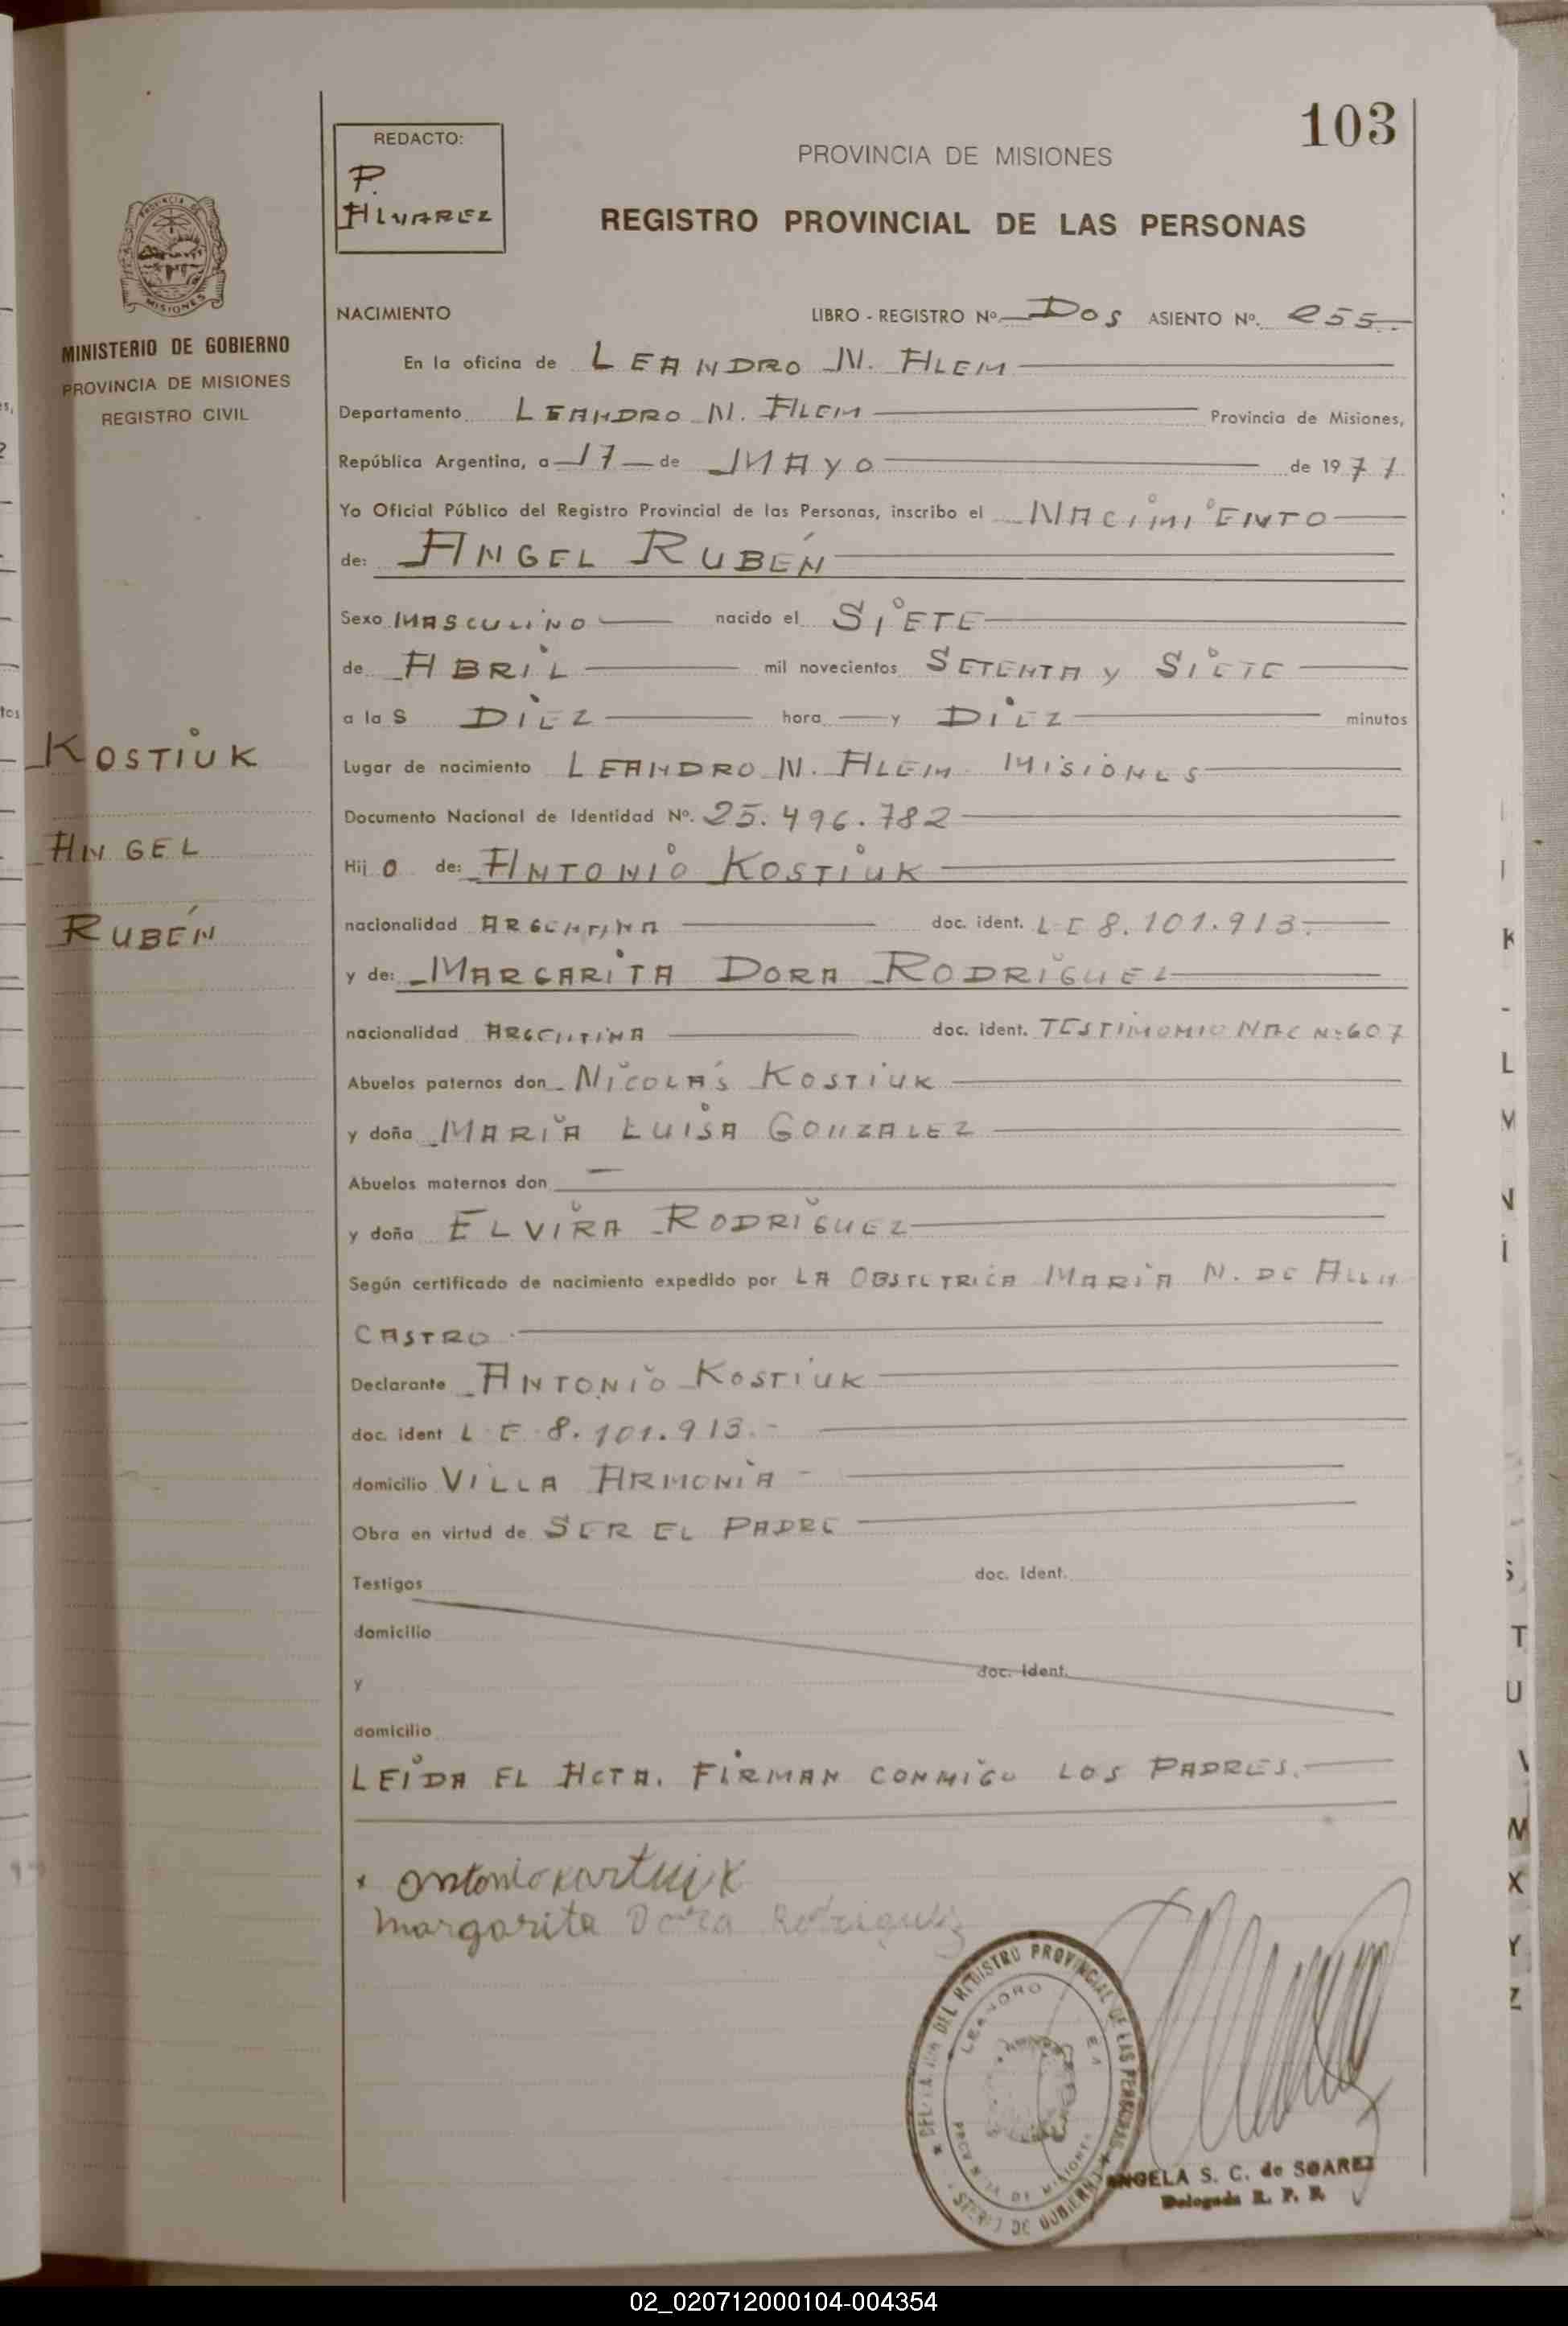 103
REDACTO:
P.
ALVAREZ
PROVINCIA DE MISIONES
REGISTRO PROVINCIAL DE LAS PERSONAS
PROVINCIA DE
MISIONES
MINISTERIO DE GOBIERNO
PROVINCIA DE MISIONES
REGISTRO CIVIL
NACIMIENTO LIBRO - REGISTRO Nº DOS ASIENTO Nº. 255.
En la oficina de LEANDRO N. ALEM
Departamento LEANDRO N. ALEM Provincia de Misiones,
República Argentina, a 17 de MAYO de 1977
Yo Oficial Público del Registro Provincial de las Personas, inscribo el NACIMIENTO
de: ANGEL RUBÉN
Sexo MASCULINO nacido el SIETE
de ABRIL mil novecientos SETENTA y SIETE
a la S DIEZ hora y DIEZ minutos
KOSTIUK
ANGEL
RUBÉN
Lugar de nacimiento LEANDRO N. ALEM MISIONES
Documento Nacional de Identidad Nº. 25.496.782
Hij O de: ANTONIO KOSTIUK
nacionalidad ARGENTINA doc. ident. L E 8.101.913.
y de: MARGARITA DORA RODRIGUEZ
nacionalidad ARGENTINA doc. ident. TESTIMONIO NAC Nº 607
Abuelos paternos don NICOLÁS KOSTIUK
y doña MARIA LUISA GONZALEZ
Abuelos maternos don —
y doña ELVIRA RODRIGUEZ
Según certificado de nacimiento expedido por LA OBSTETRICA MARIA N. DE
CASTRO.
Declarante ANTONIO KOSTIUK
doc. ident L E 8.101.913.-
domicilio VILLA ARMONIA -
Obra en virtud de SER EL PADRE
Testigos doc. ident.
domicilio
y doc. ident.
domicilio
LEIDA EL ACTA. FIRMAN CONMIGO LOS PADRES.
Margarita Dora Rodriguez
DEL REGISTRO PROVINCIAL DE LAS PERSONAS
LEANDRO
PROVINCIA DE MISIONES
DE GOBIERNO
ANGELA S. C. de SOAREZ
Delegada R. P. P.
K
L
M
N
S
T
U
W
X
Y
Z
02_020712000104-004354